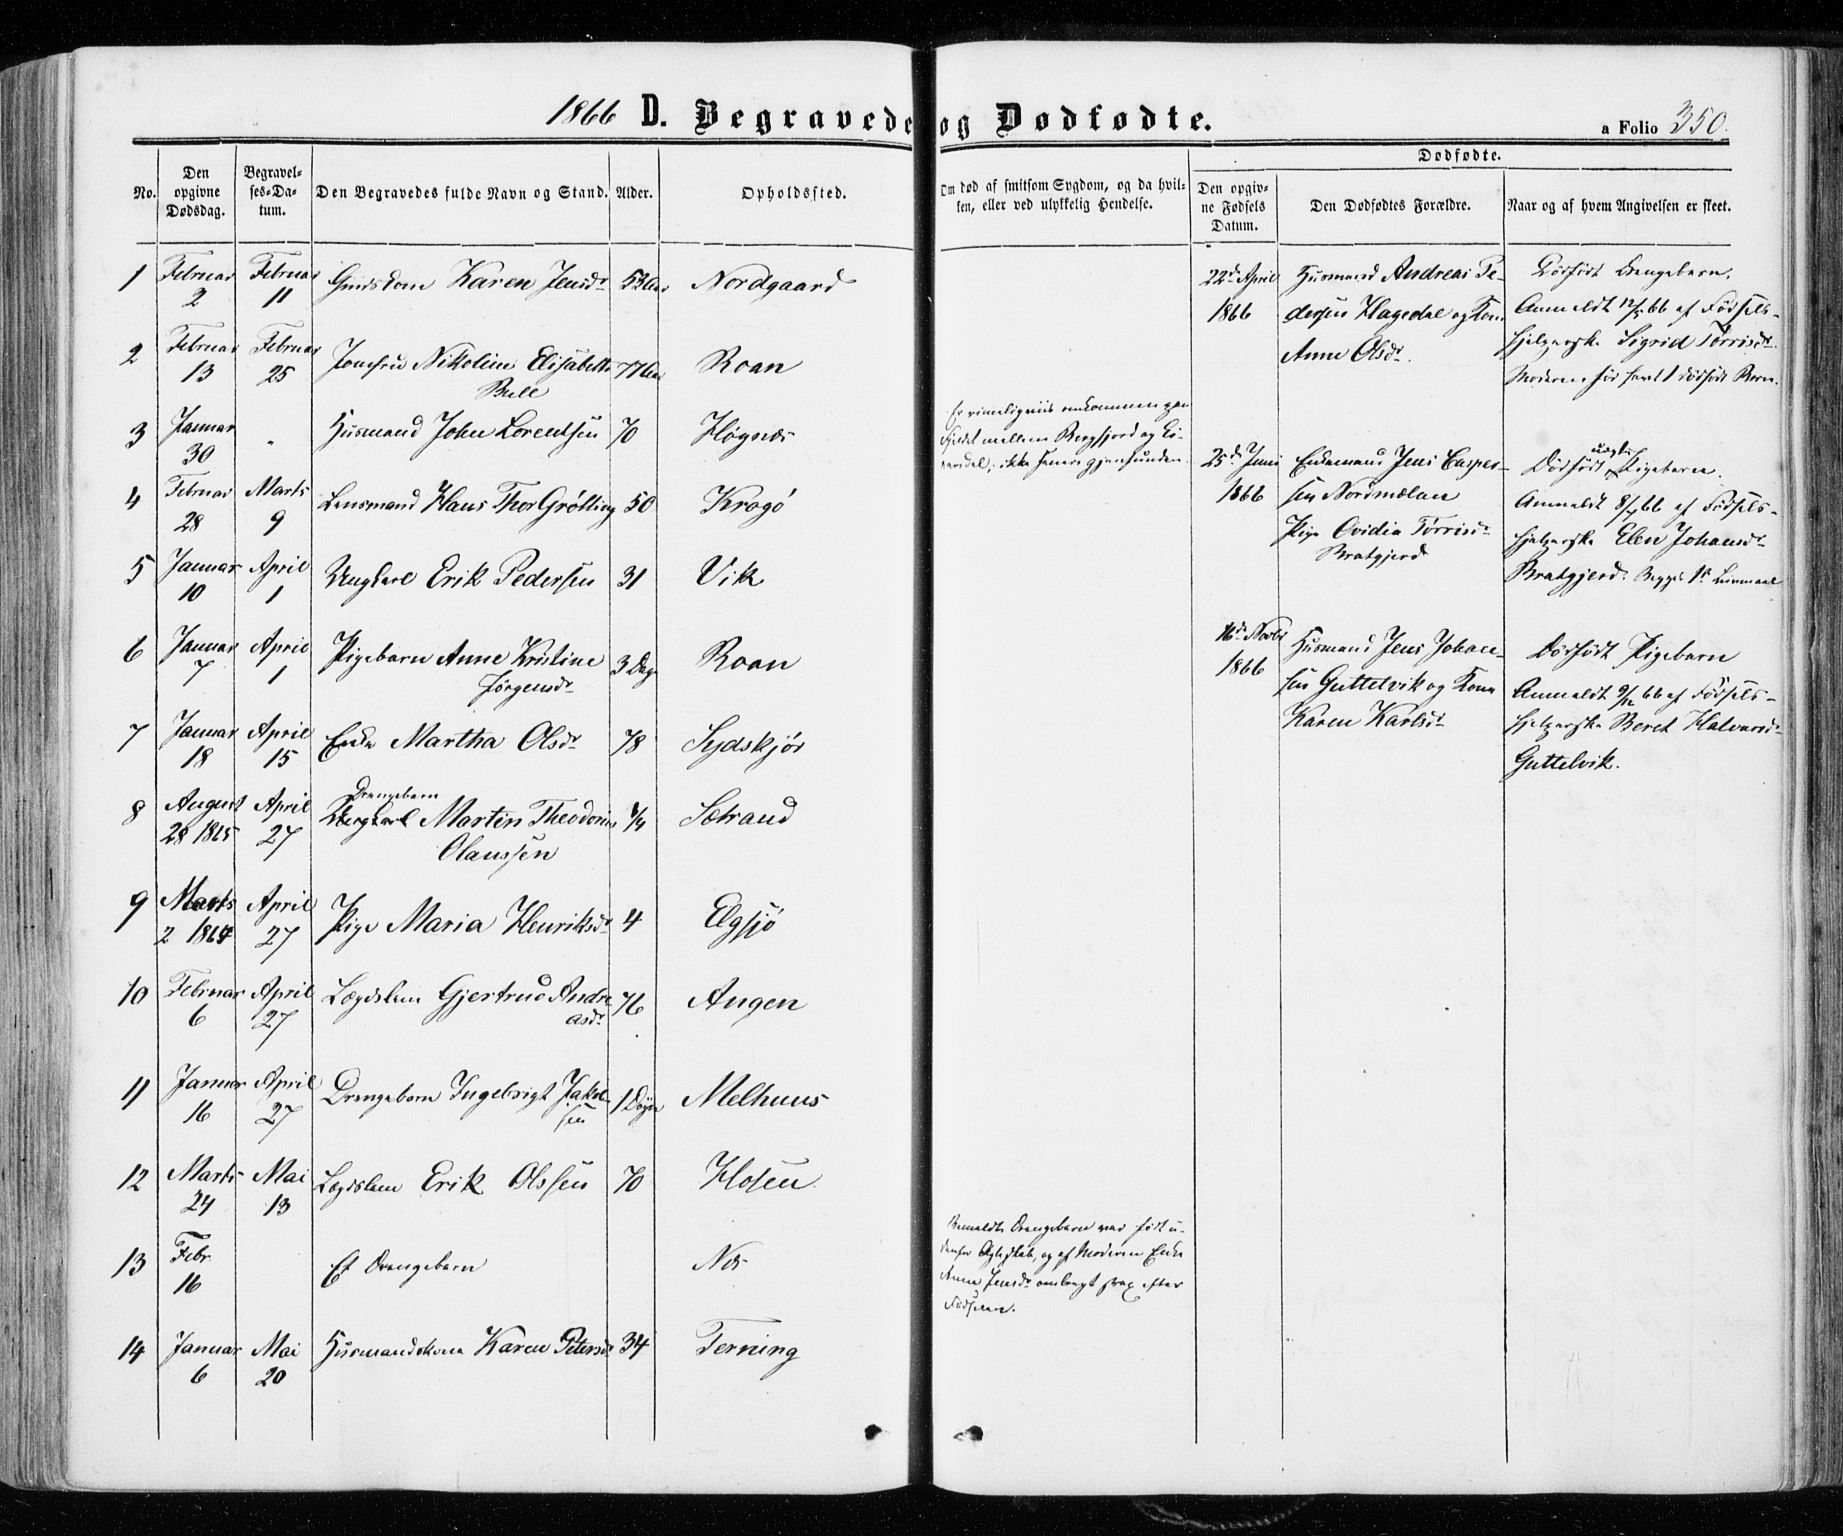 1866 D. Begravede og Dødfødte.
a Folio 350.
No.
Den opgivne Dødsdag.
Begravelses-Datum.
Den Begravedes fulde Navn og Stand.
Alder.
Opholdssted.
Om død af smitsom Sygdom, og da hvilken, eller ved ulykkelig Hendelse.
Dødfødte.
Den opgivne Fødsels Datum.
Den Dødfødtes Forældre.
Naar og af hvem Angivelsen er skeet.
1 Februar 2 Februar 11 Karen Jensdr 53 Nordgaard
2 Februar 13 Februar 25 Jomfru Nikoline Elisabeth Bull 77 Roan
3 Januar 30 " Husmand John Lorentsen 70 Høgnæs
Er rimeligviis omkommen paa
Fjeldet mellem Bergfjord og
ikke senere gjenfunden.
4 Februar 28 Marts 9 Lensmand Hans Thor Grøtting 50 Kragø
5 Januar 10 April 1 Ungkarl Erik Pedersen 31 Vik
6 Januar 7 April 1 Pigebarn Anne Kristine Jørgensdr 3 Dage Roan
7 Januar 18 April 15 Enke Martha Olsdr 78 Sydskjør
8 August 28 1865 April 27 Drengebarn Martin Theodorius Olaussen 1/4 Sætrand
9 Marts 2 1864 April 27 Pige Maria Henriksdr 4 Elgsjø
10 Februar 6 April 27 Lægdslem Gjertrud Andreasdr 76 Augen
11 Januar 16 April 27 Drengebarn Ingebrigt Jakobsen 1 Melhuus
12 Marts 24 Mai 13 Lægdslem Erik Olssen 70 Hosen
13 Febr 16 Et Drengebarn Næs
Bemeldte Drengebarn var født u-
denfor Ægteskab, og af Moderen Enke
Anne Jensdr ombragt strax efter
Fødselen.
14 Januar 6 Mai 20 Husmandskone Karen Petersdr 34 Terning
22de April 1866
Husmand Andreas Pe-
dersen Hagedal og Kone
Anne Olsdr.
Dødfødt Drengebarn.
Anmeldt 12/5 66 af Fødsels-
hjelperske Sigrid Tørrisdr.
Moderen før havt 1 dødfødt Barn.
25de Juni 1866
Enkemand Jens Casper-
sen Nordmælan
Pige Ovidia Tørrisdr
Bratgjerd
Dødfødt uægte Pigebarn.
Anmeldt 8/7 66 af Fødsels-
hjelperske Elen Johansdr
Bratgjerd. Begges 1st Leiermaal
16de Novbr 1866
Husmand Jens Johan-
sen Guttelvik og Kone
Karen Karlsdr
Dødfødt Pigebarn
Anmeldt 9/12 66 af Fødsels-
hjelperske Beret Halvorsdr
Guttelvik.